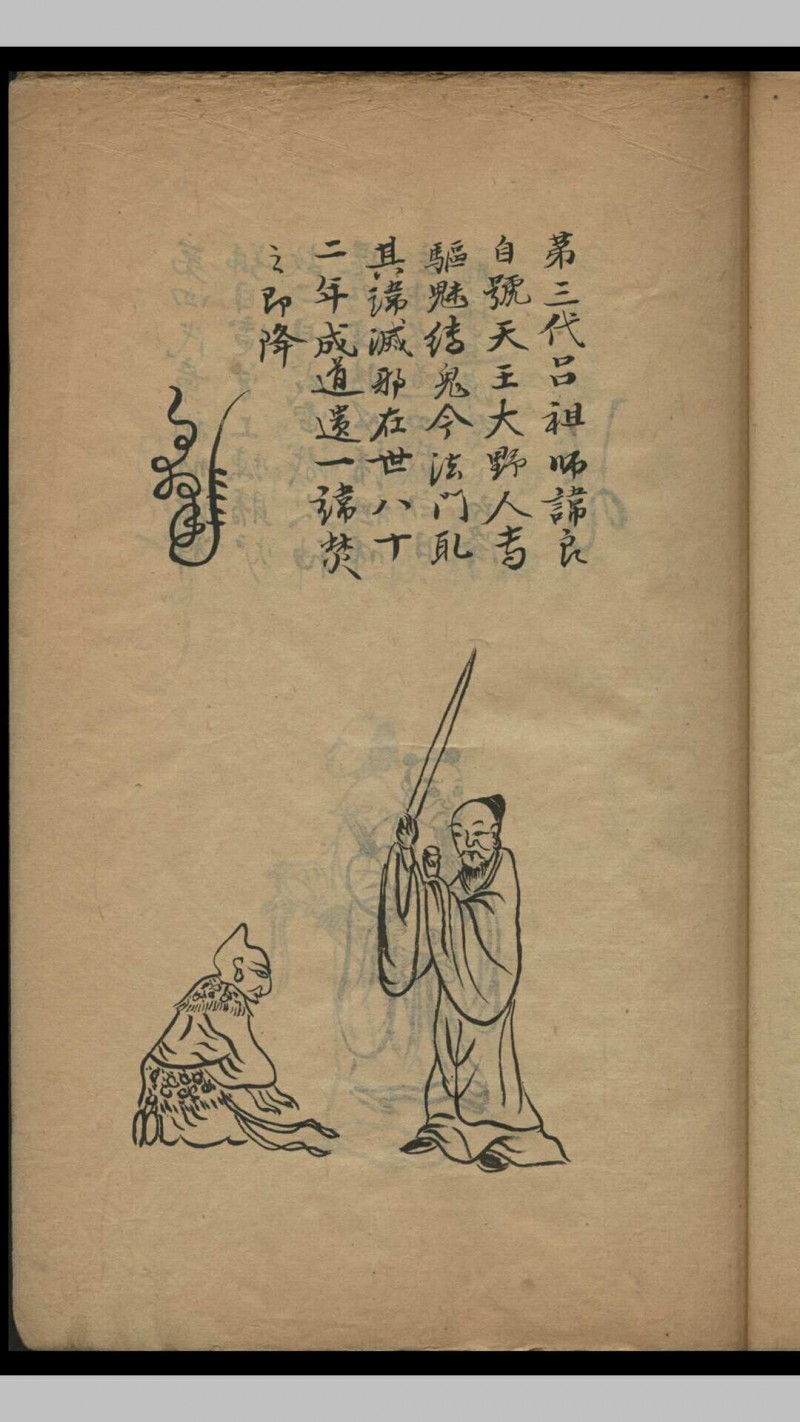 第三代呂祖師諱良
自號天王大野人書
驅魅縛鬼今法門耴
其諱滅邪在世八十
二年成道遺一諱焚
之即降